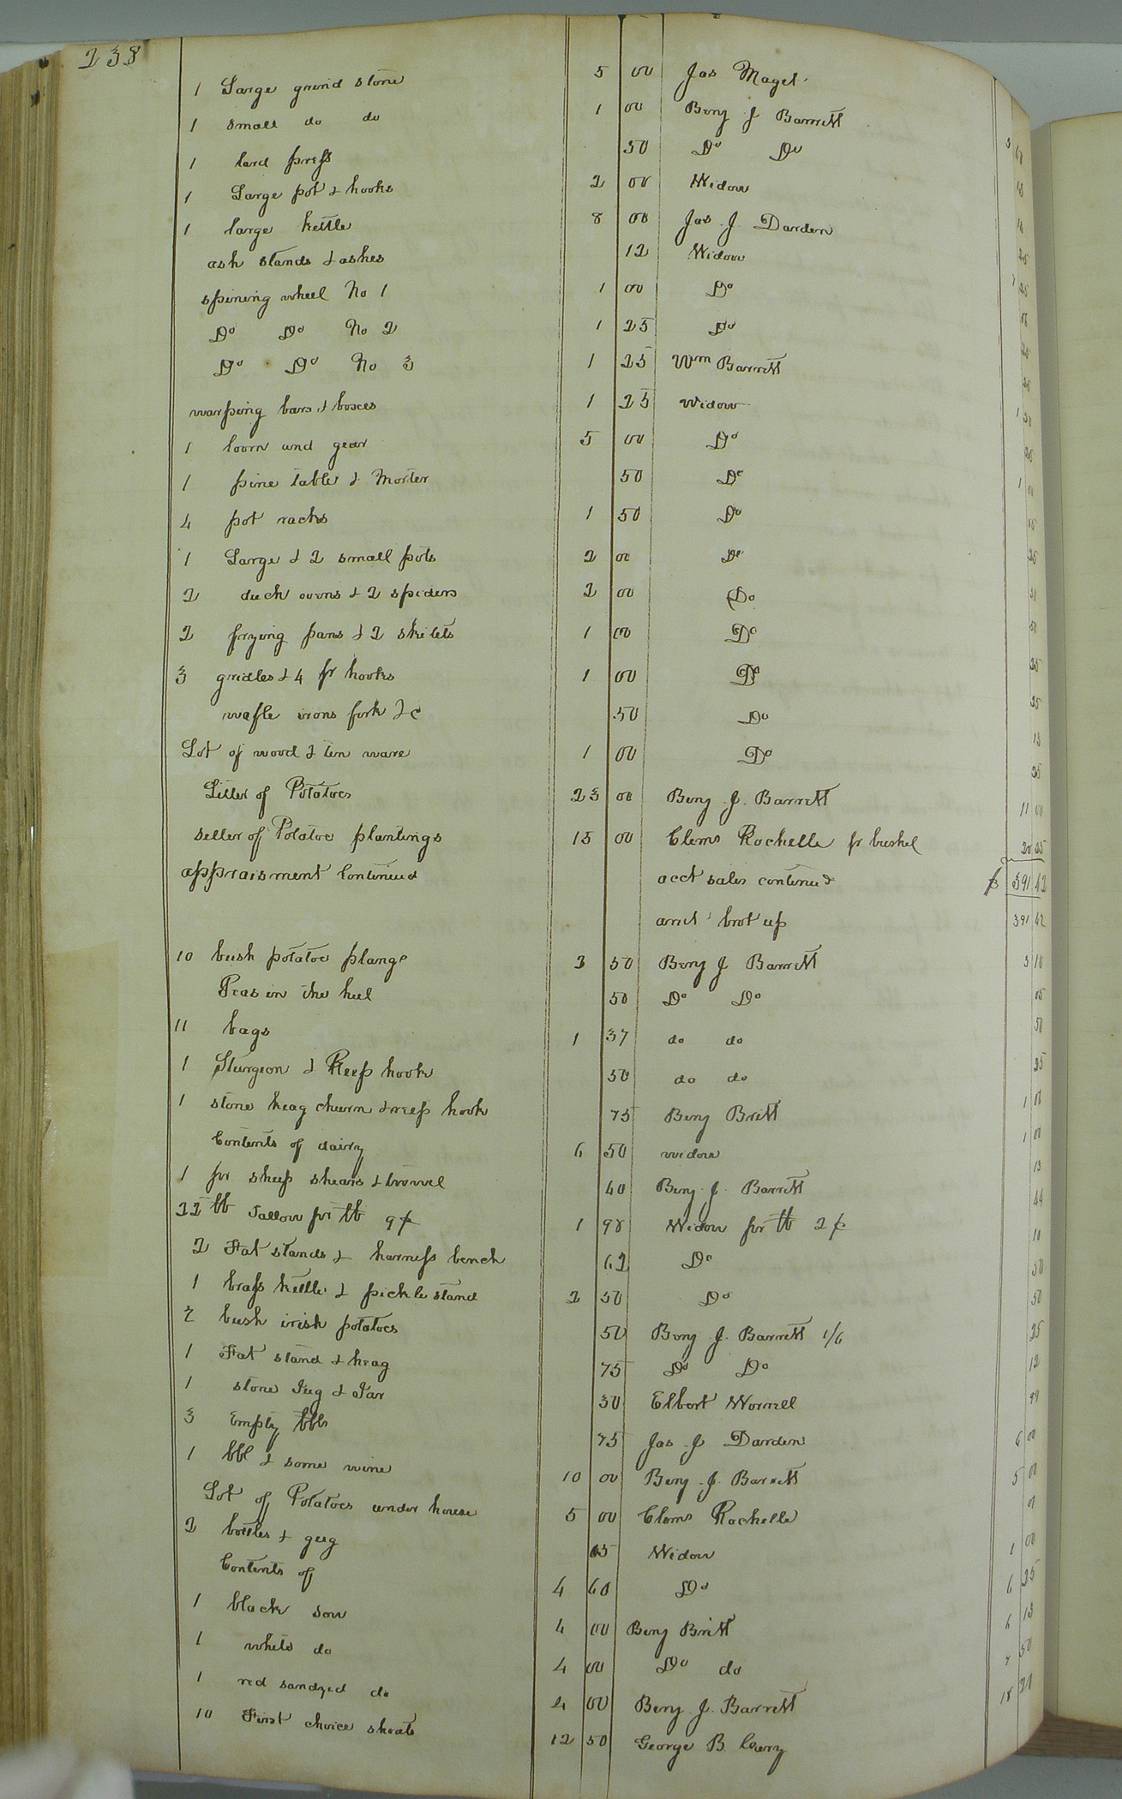 238
1 Large grind stone 5 00 Jas Maget
1 small do do 1 00 Benj J Barrett
1 lard press 50 Do Do
1 Large pot & hooks 2 00 Widow
1 large kettle 8 00 Jas J. Darden
ash stands & ashes 12 Widow
spining wheel No 1 1 00 Do
Do Do No 2 1 25 Do
Do Do No 3 1 25 Wm Barrett
warping bars & boxes 1 25 Widow
1 loom and gear 5 00 Do
1 pine table & Morter 50 Do
4 pot racks 1 50 Do
1 Large & 2 small pots 2 00 Do
2 duch ovons & 2 spiders 2 00 Do
2 frying pans & 2 skilets 1 00 Do
3 gridles & 4 pr hooks 1 00 Do
wafle irons fork &c 50 Do
Lot of wood & tin ware 1 00 Do
Seller of Potatoes 23 00 Benj. J. Barrett 11 00
seller of Potatoe plantings 15 00 Clems Rochelle pr bushel 20 25
appraisment Continued acct sales continued $ 391 42
and brot up 391 42
10 bush potatoe plangs 2 50 Benj J Barrett 5 10
Peas in the hul 50 Do Do
11 bags 1 37 do do 50
1 Sturgeon & Reep hook 50 do do 25
1 stone keag churn & reep hook 75 Benj Britt 1
Contents of dairy 6 50 widow 1
1 pr sheep shears & trowel 40 Benj. J. Barrett
22 lb Tallow pr lb 9¢ 1 98 Widow pr lb 2¢
2 Fat stands & harness bench 62 Do 50
1 brass kettle & pickle stand 2 50 Do 50
2 bush irish potatoes 50 Benj J. Barrett 1/6 25
1 Fat stand & keag 75 Do Do 12
1 stone Jug & Jar 30 Elbert Worrell
3 Empty bbls 75 Jas J Darden 6 00
1 bbl & some wine 10 00 Benj. J. Barrett 5
Lot of Potatoes under house 5 00 Clems Rochelle
2 bottles & gug 15 Widow 1 00
Contents of 4 60 Do 6 25
1 black sow 4 00 Benj Britt 6 13
1 white do 4 00 Do do 50
1 red sandyed do 4 00 Benj. J. Barrett 18
10 First choice shoats 12 50 George B. Cowry